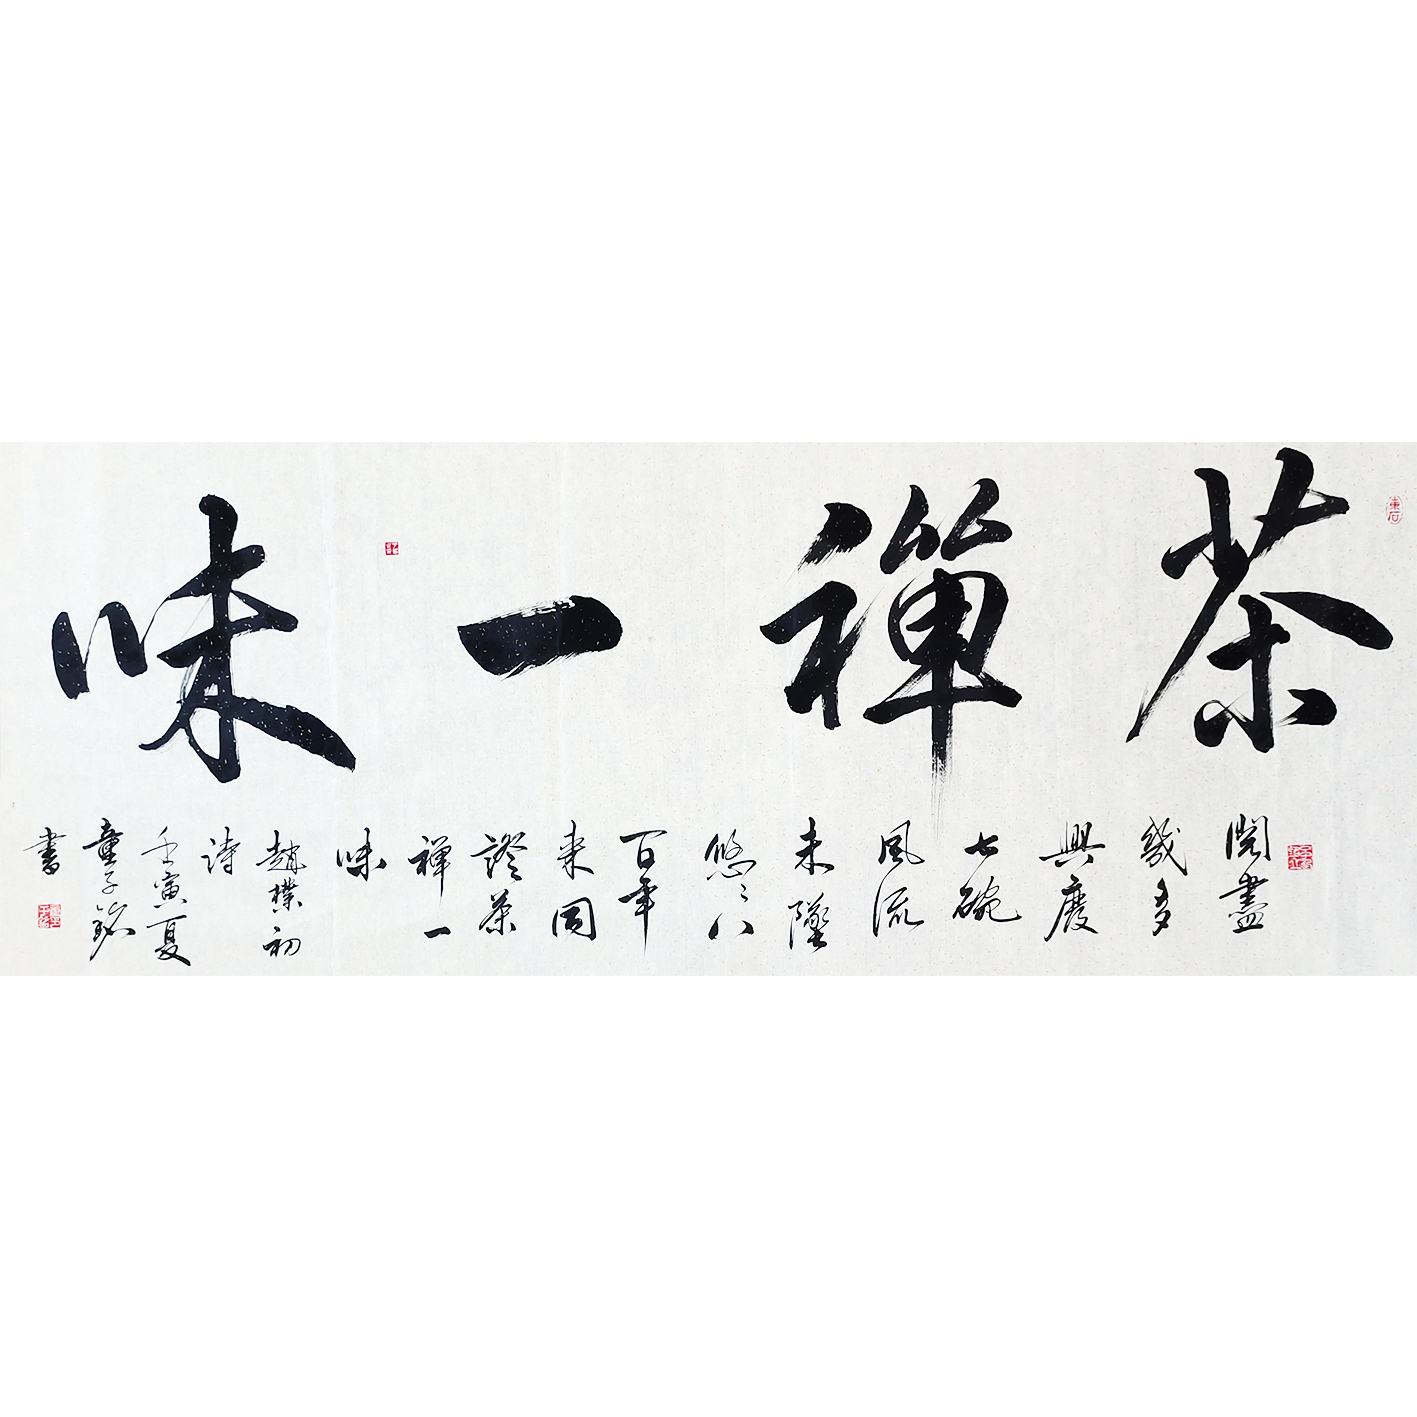 茶禪一味
閱盡
幾多
興廢
七碗
風流
未墜
悠々八
百年
来同
證茶
禪一
味
趙樸初
詩
壬寅夏
童子銘
書